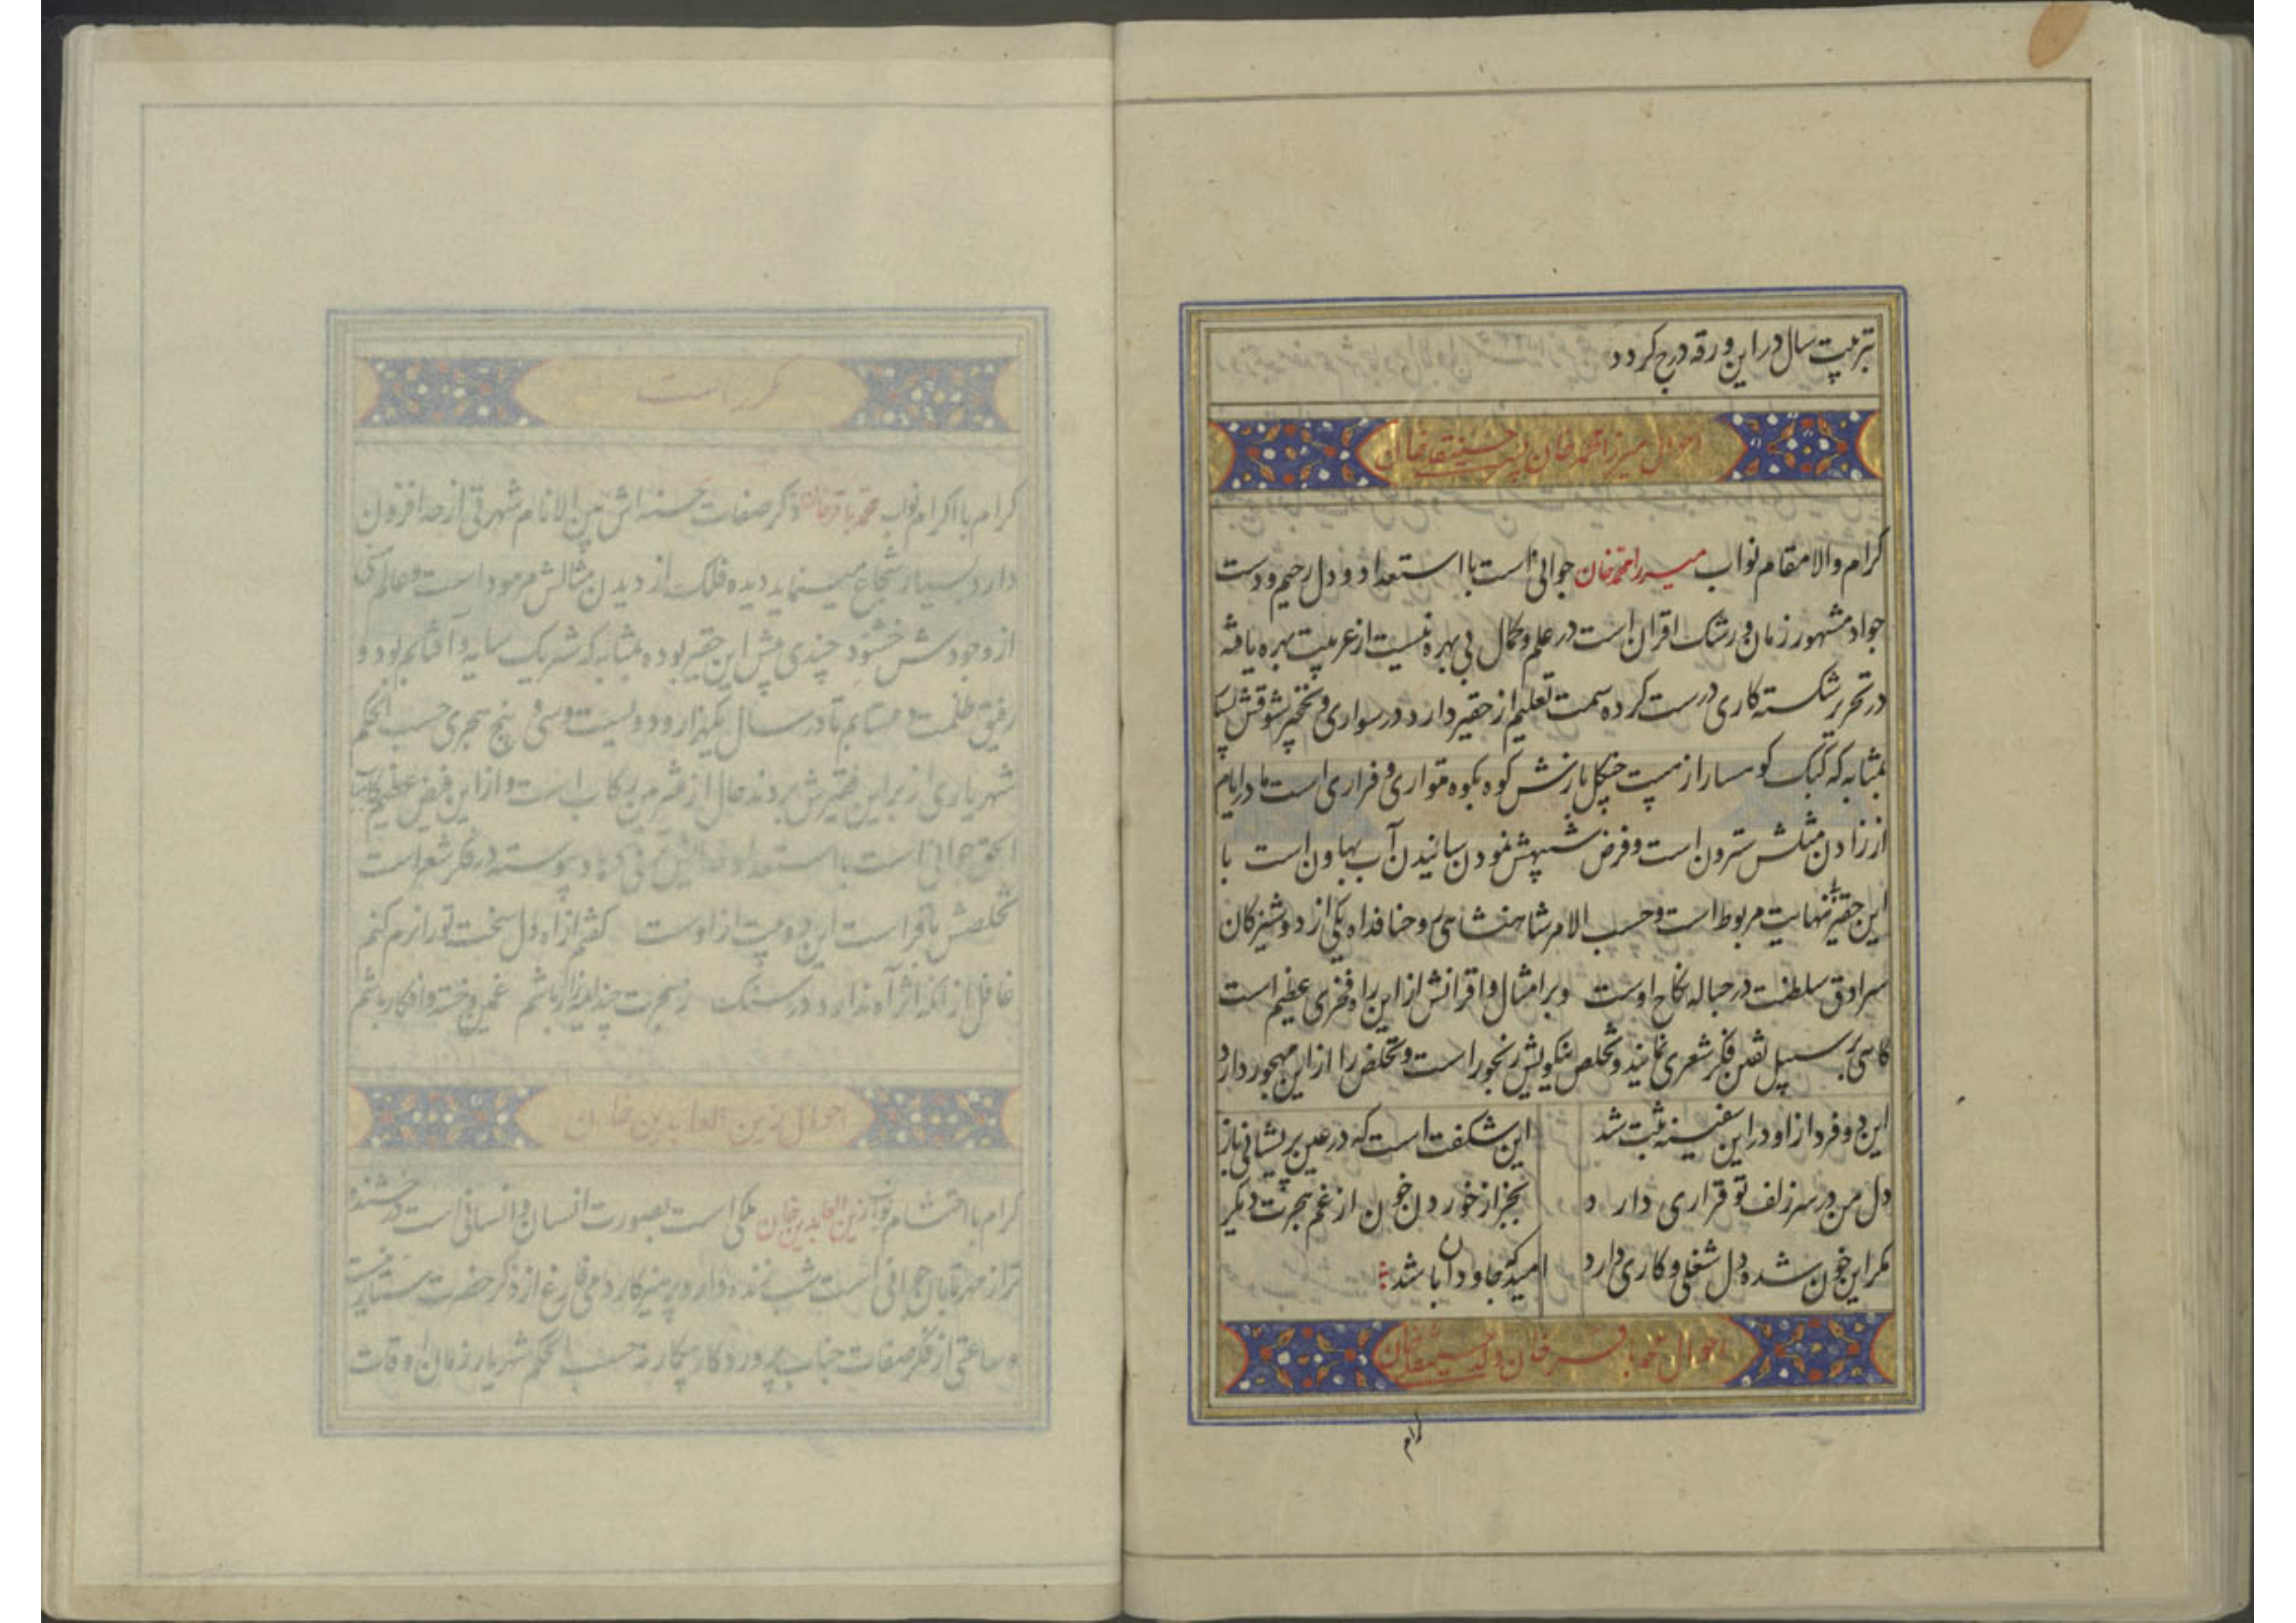 بترتیب سال در این ورقه درج کردد
احوال میرزا محمد خان پسر حسینقلیخان
کرام والامقام نواب میرزا محمد خان جوانی است با استعداد و دل رحیم و دست
جواد مشهور زمان و رشک اقران است در علم و کمال بی بهره نیست از عربیت بهره یافته
در تحریر شکسته کاری درست کرده سمت تعلیم از حقیر دارد در سواری و نخجیر شوقش
بمثابه که کبک کوهسار از هیبت چنکل بازش کوه بکوه متواری و فراری است مادر ایام
از زادن مثلش سترون است و فرض شبیهش نمودن سانیدن آب بهاون است با
این حقیر بنهایت مربوط است و حسب الامر شاهنشاهی روحنا فداه یکی از دوشیزکان
سرادق سلطنت در حباله نکاح اوست و بر امثال و اقرانش از این راه فخری عظیم است
کاهی بر سبیل تفنن فکر شعری نماید و تخلص نیکویش رنجور است و تخلص را از این مهجور دارد
این دو فرد از او در این سفینه ثبت شد این شکفت است که در عین پریشانی باز
دل من در سر زلف تو قراری دارد بجز از خوردن خون از غم هجرت دیگر
مکر این خون شده دل شغلی و کاری دارد امید که جاودان باشد
احوال محمد باقر خان ولد حسینقلیخان
کرام
مکرر است
کرام با اکرام نواب محمد باقر خان ذکر صفات حسنه اش بین الانام شهرتی از حد افزون
دارد بسیار شجاع مینماید دیده فلک از دیدن مثالش مرمود است و عالمی
از وجودش خشنود چندی پیش این حقیر بوده بمثابه که شریک سایه و آفتابم بود و
رفیق ظلمت و مهتابم تا در سال یکهزار و دویست و سی و پنج هجری حسب الحکم
شهریاری از بر این فقیرش بردند حال از ملتزمین رکاب است و از این فیض عظیم
الحق جوانی است با استعداد پیوسته در فکر شعر است
تخلصش باقر است این دو بیت از اوست کفتم از آه دل سخت تو را نرم کنم
غافل از انکه اثر آه ندارد در سنک ز هجرت چند زار باشم غمین و خسته و افکار باشم
احوال زین العابدین خان
کرام با احتشام نواب زین العابدین خان ملکی است بصورت انسان و انسانی است درخشنده
تر از مهر تابان جوانی است شب زنده دار و پرهیزکار دمی فارغ از ذکر حضرت ستار نیست
و ساعتی از فکر صفات جناب پروردکار بیکار نه حسب الحکم شهریار زمان اوقات